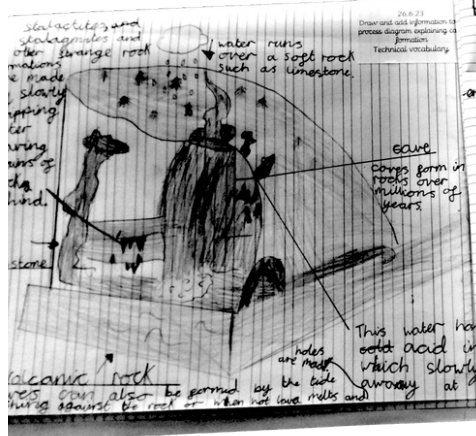 26.6.23
Draw and add information to
process diagram explaining ca
formation
Technical vocabulary
stalactites, and
stalagmites and
other strange rock
mations
e made
slowly
pping
ter
aving
ains of
cks
hind.
water runs
over a soft rock
such as limestone.
cave
caves form in
rocks over
millions of
years.
stone
holes
are made.
This water ha
acid in
which slowly
away at
olcanic rock
ves can also be formed by the tide
against the rock or when hot lava melts and